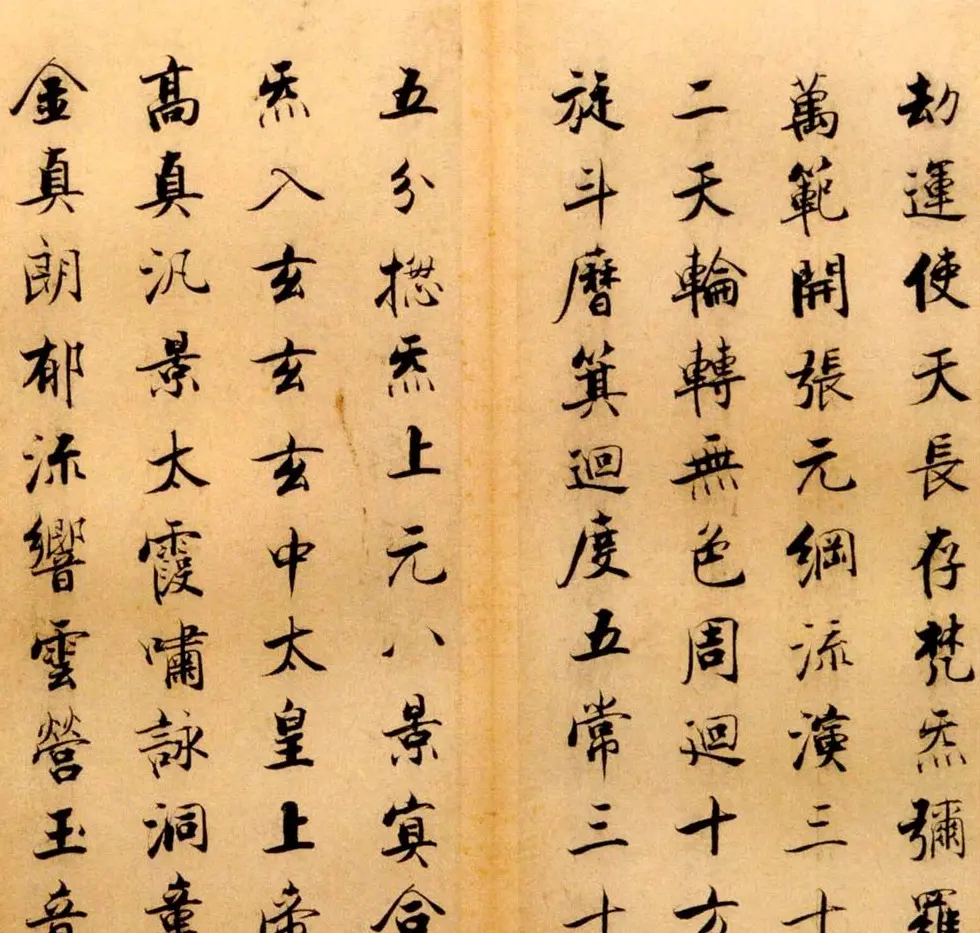 劫運使天長存梵炁彌羅
萬範開張元綱流演三十
二天輪轉無色周迴十方
旋斗曆箕迴度五常三十
五分揔炁上元八景㝠合
炁入玄玄玄中太皇上帝
髙真汎景太霞嘯詠洞章
金真朗郁流響雲營玉音